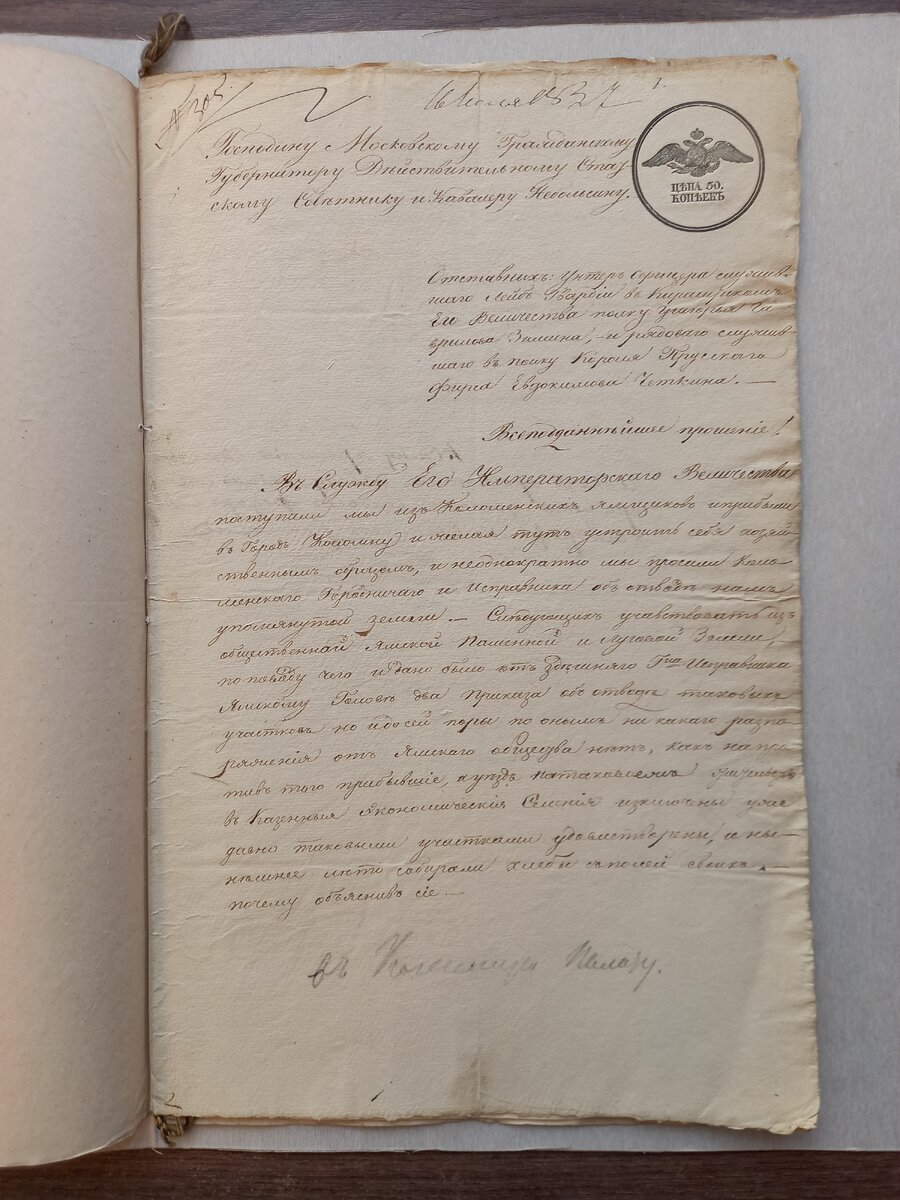 № 303.
16 Июля 1837
1.
ЦѢНА 50.
КОПѢЕКЪ
Господину Московскому Гражданскому
Губернатору Дѣйствительному Стат-
скому Совѣтнику и Кавалеру Небольсину.
Отставныхъ: Унтеръ Офицера служив-
шаго Лейбъ Гвардіи въ Кирасирскомъ
Ея Величества полку Григорья Га-
врилова Зимина, и рядоваго служив-
шаго въ полку Короля Прусскаго
Фирса Евдокимова Четкина. —
Всеподданнѣйшее прошеніе!
Въ Службу Его Императорскаго Величества
поступали мы изъ Коломенскихъ ямщиковъ и прибыли
въ Городъ Коломну и желая тутъ устроить себя хозяй-
ственнымъ образомъ, и неоднократно мы просили Коло-
менскаго Городничаго и Исправника объ отводѣ намъ
упомянутой земли — Слѣдующихъ участвовать изъ
общественной Ямской Пашенной и Луговой Земли,
по поводу чего и дано было отъ Здѣшняго Гна Исправника
Ямскому Головѣ два Приказа объ отводѣ таковыхъ
участковъ но и до сей поры по онымъ ни какаго распо-
ряженія отъ Ямскаго общества нѣтъ, какъ на про-
тивъ того прибывшіе, в уѣздъ на таковомъ
въ Казенныя Экономическія Селенія изключены уже
давно таковыми участками удовлетворены, и ны-
нѣшнее лѣто собирали хлебы съ полей своихъ. —
почему объяснивъ сіе. —
въ Казенную Палату.
2
1